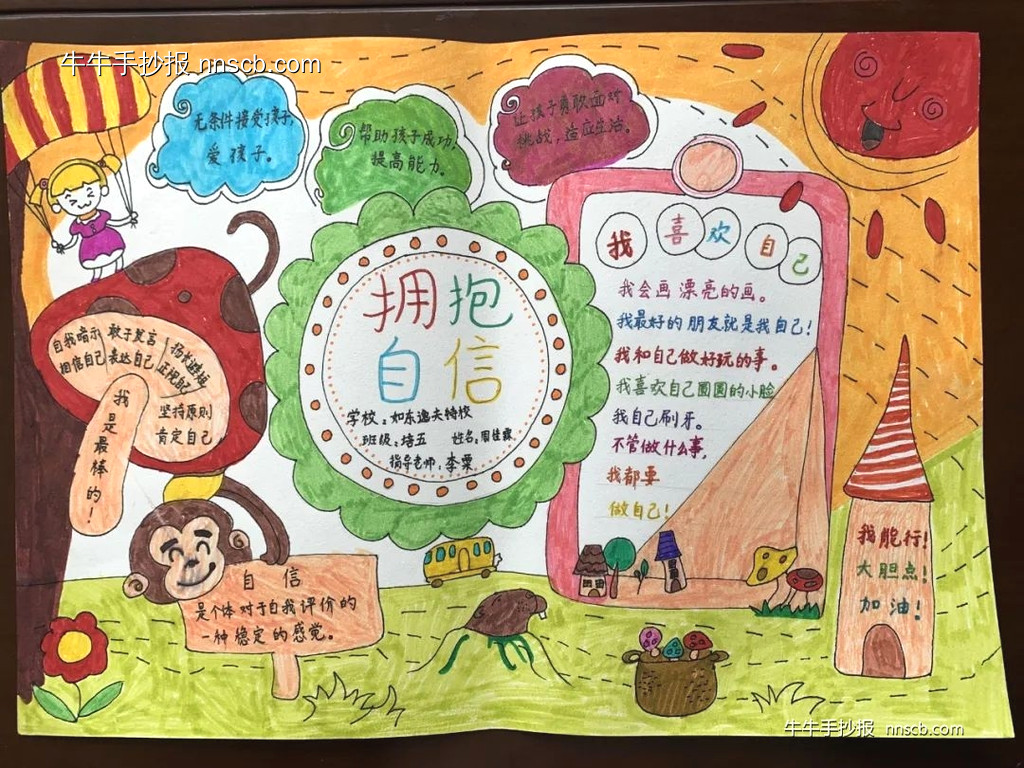 牛牛手抄报 nnscb.com
无条件接受孩子,
爱孩子。
帮助孩子成功,
提高能力。
让孩子勇敢面对
挑战,适应生活。
拥抱
自信
学校:如东逸夫特校
班级:培五 姓名:周佳霖
指导老师:李栗
我喜欢自己
我会画漂亮的画。
我最好的朋友就是我自己!
我和自己做好玩的事。
我喜欢自己圆圆的小脸
我自己刷牙。
不管做什么事,
我都要
做自己!
自我暗示
相信自己
敢于发言
表达自己
扬长避短
正视自己
坚持原则
肯定自己
我是最棒的!
自信
是个体对于自我评价的
一种稳定的感觉。
我能行!
大胆点!
加油!
牛牛手抄报 nnscb.com